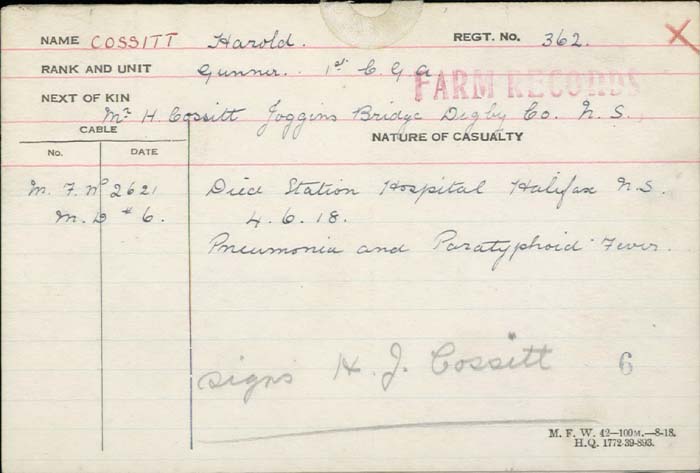 NAME COSSITT Harold. REGT. No. 362.
RANK AND UNIT Gunner. 1st C G A
FARM RECORDS
NEXT OF KIN
Mr H. Cossitt Joggins Bridge Digby Co. N. S.
CABLE
NATURE OF CASUALTY
No. DATE
M. F. No 2621 Died Station Hospital Halifax N. S.
M. D # 6. 4. 6. 18.
Pneumonia and Paratyphoid Fever.
signs H. J. Cossitt 6
M. F. W. 42—100M.—8-18.
H.Q. 1772-39-893.